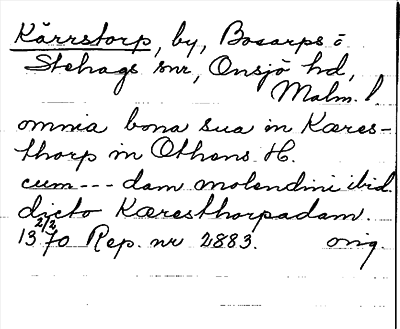 Kärrstorp, by, Bosarps o
Stehags snr, Onsjö hd,
Malm. l
omnia bona sua in Kæres-
thorp in Othens H.
cum --- dam molendini ibid.
dicto Kæresthorpadam.
13 2/2 70 Rep. nr 2883. orig.